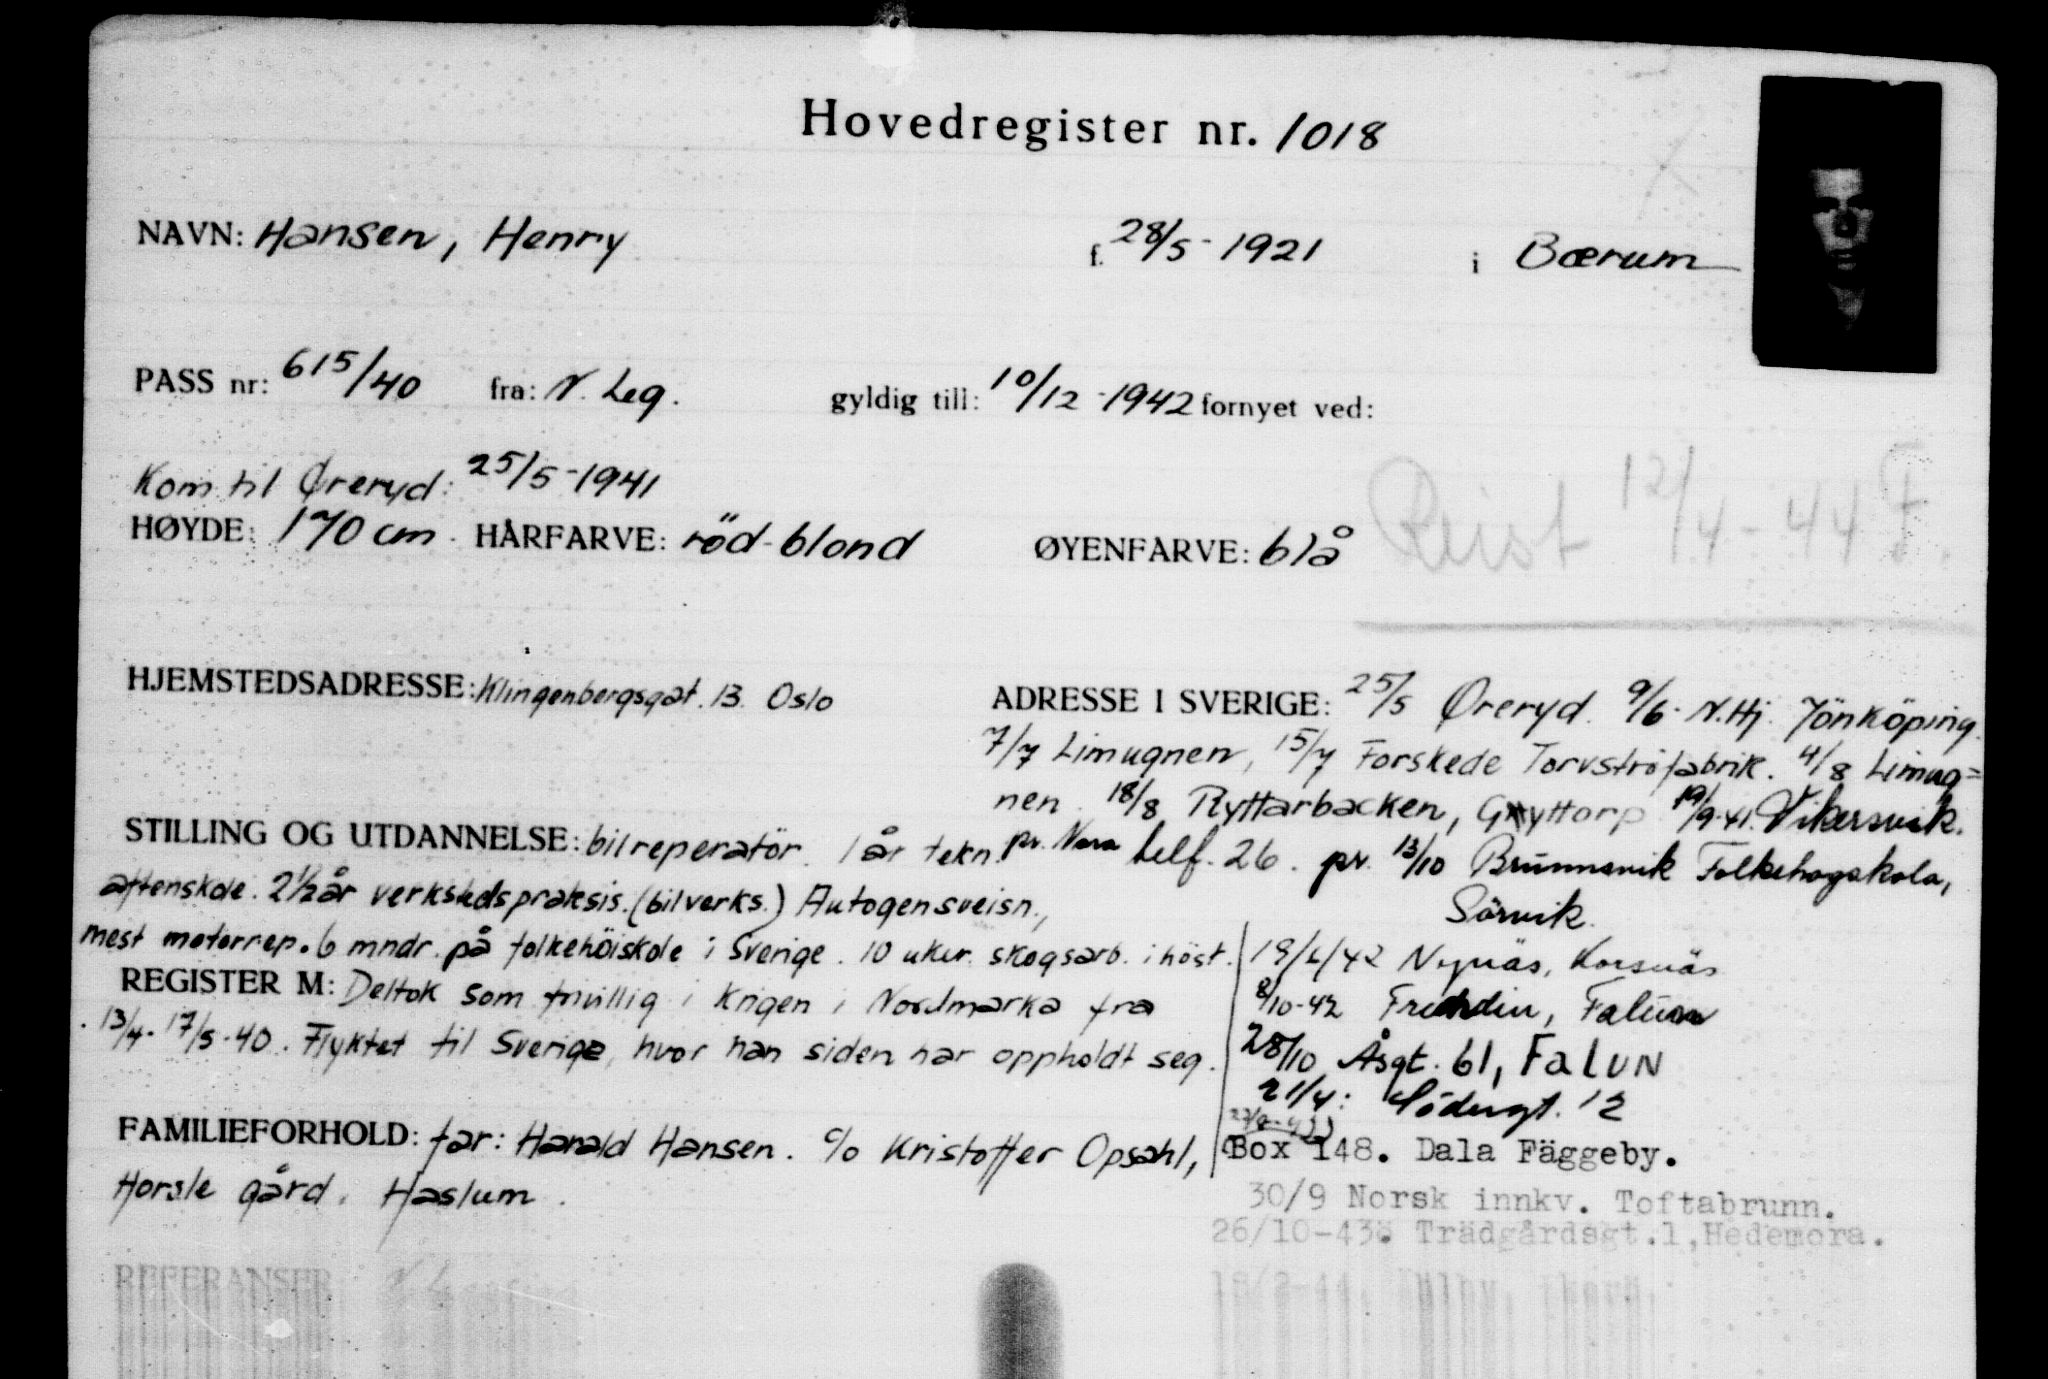 Hovedregister nr. 1018
NAVN: Hansen, Henry f. 28/5-1921 i Bærum
PASS nr: 615/40 fra: N. Leg. gyldig till: 10/12-1942 fornyet ved:
Kom til Øreryd: 25/5-1941
HØYDE: 170 cm. HÅRFARVE: röd-blond ØYENFARVE: blå
Reist 12/4-44 F.
HJEMSTEDSADRESSE: Klingenbergsgat. 13. Oslo
ADRESSE I SVERIGE: 25/5 Øreryd. 9/6- N.Hj. Jönköping.
7/7 Limugnen, 15/7 Forskede Torvströfabrik. 4/8 Limug=
nen. 18/8 Ryttarbacken, Gyttorp 19/9-41. Vikersvik.
pr. Nora telf. 26. pr. 13/10 Brunnsvik Folkehögskola,
Sörvik.
STILLING OG UTDANNELSE: bilreperatör. 1 år tekn.
aftenskole. 2½ år verkstedspraksis. (bilverks.) Autogensveisn.,
mest motorrep. 6 mndr. på folkehöiskole i Sverige. 10 uker skogsarb. i höst.
REGISTER M: Deltok som frivillig i krigen i Nordmarka fra
13/4- 17/5-40. Flyktet til Sverige, hvor han siden har oppholdt seg.
FAMILIEFORHOLD: far: Harald Hansen. c/o Kristoffer Opsahl,
Horsle gård. Haslum.
19/6/42 Nynäs, Korsnäs
8/10-42 Falun
28/10 Åsgt. 61, Falun
21/4: Södergt. 12
Box 148. Dala Fäggeby.
30/9 Norsk innkv. Toftabrunn.
26/10-43: Trädgårdsgt.1, Hedemora.
REFERANSER